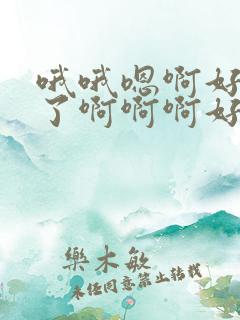 哦哦嗯啊好
了啊啊啊好
樂木敏
未经同意禁止转载